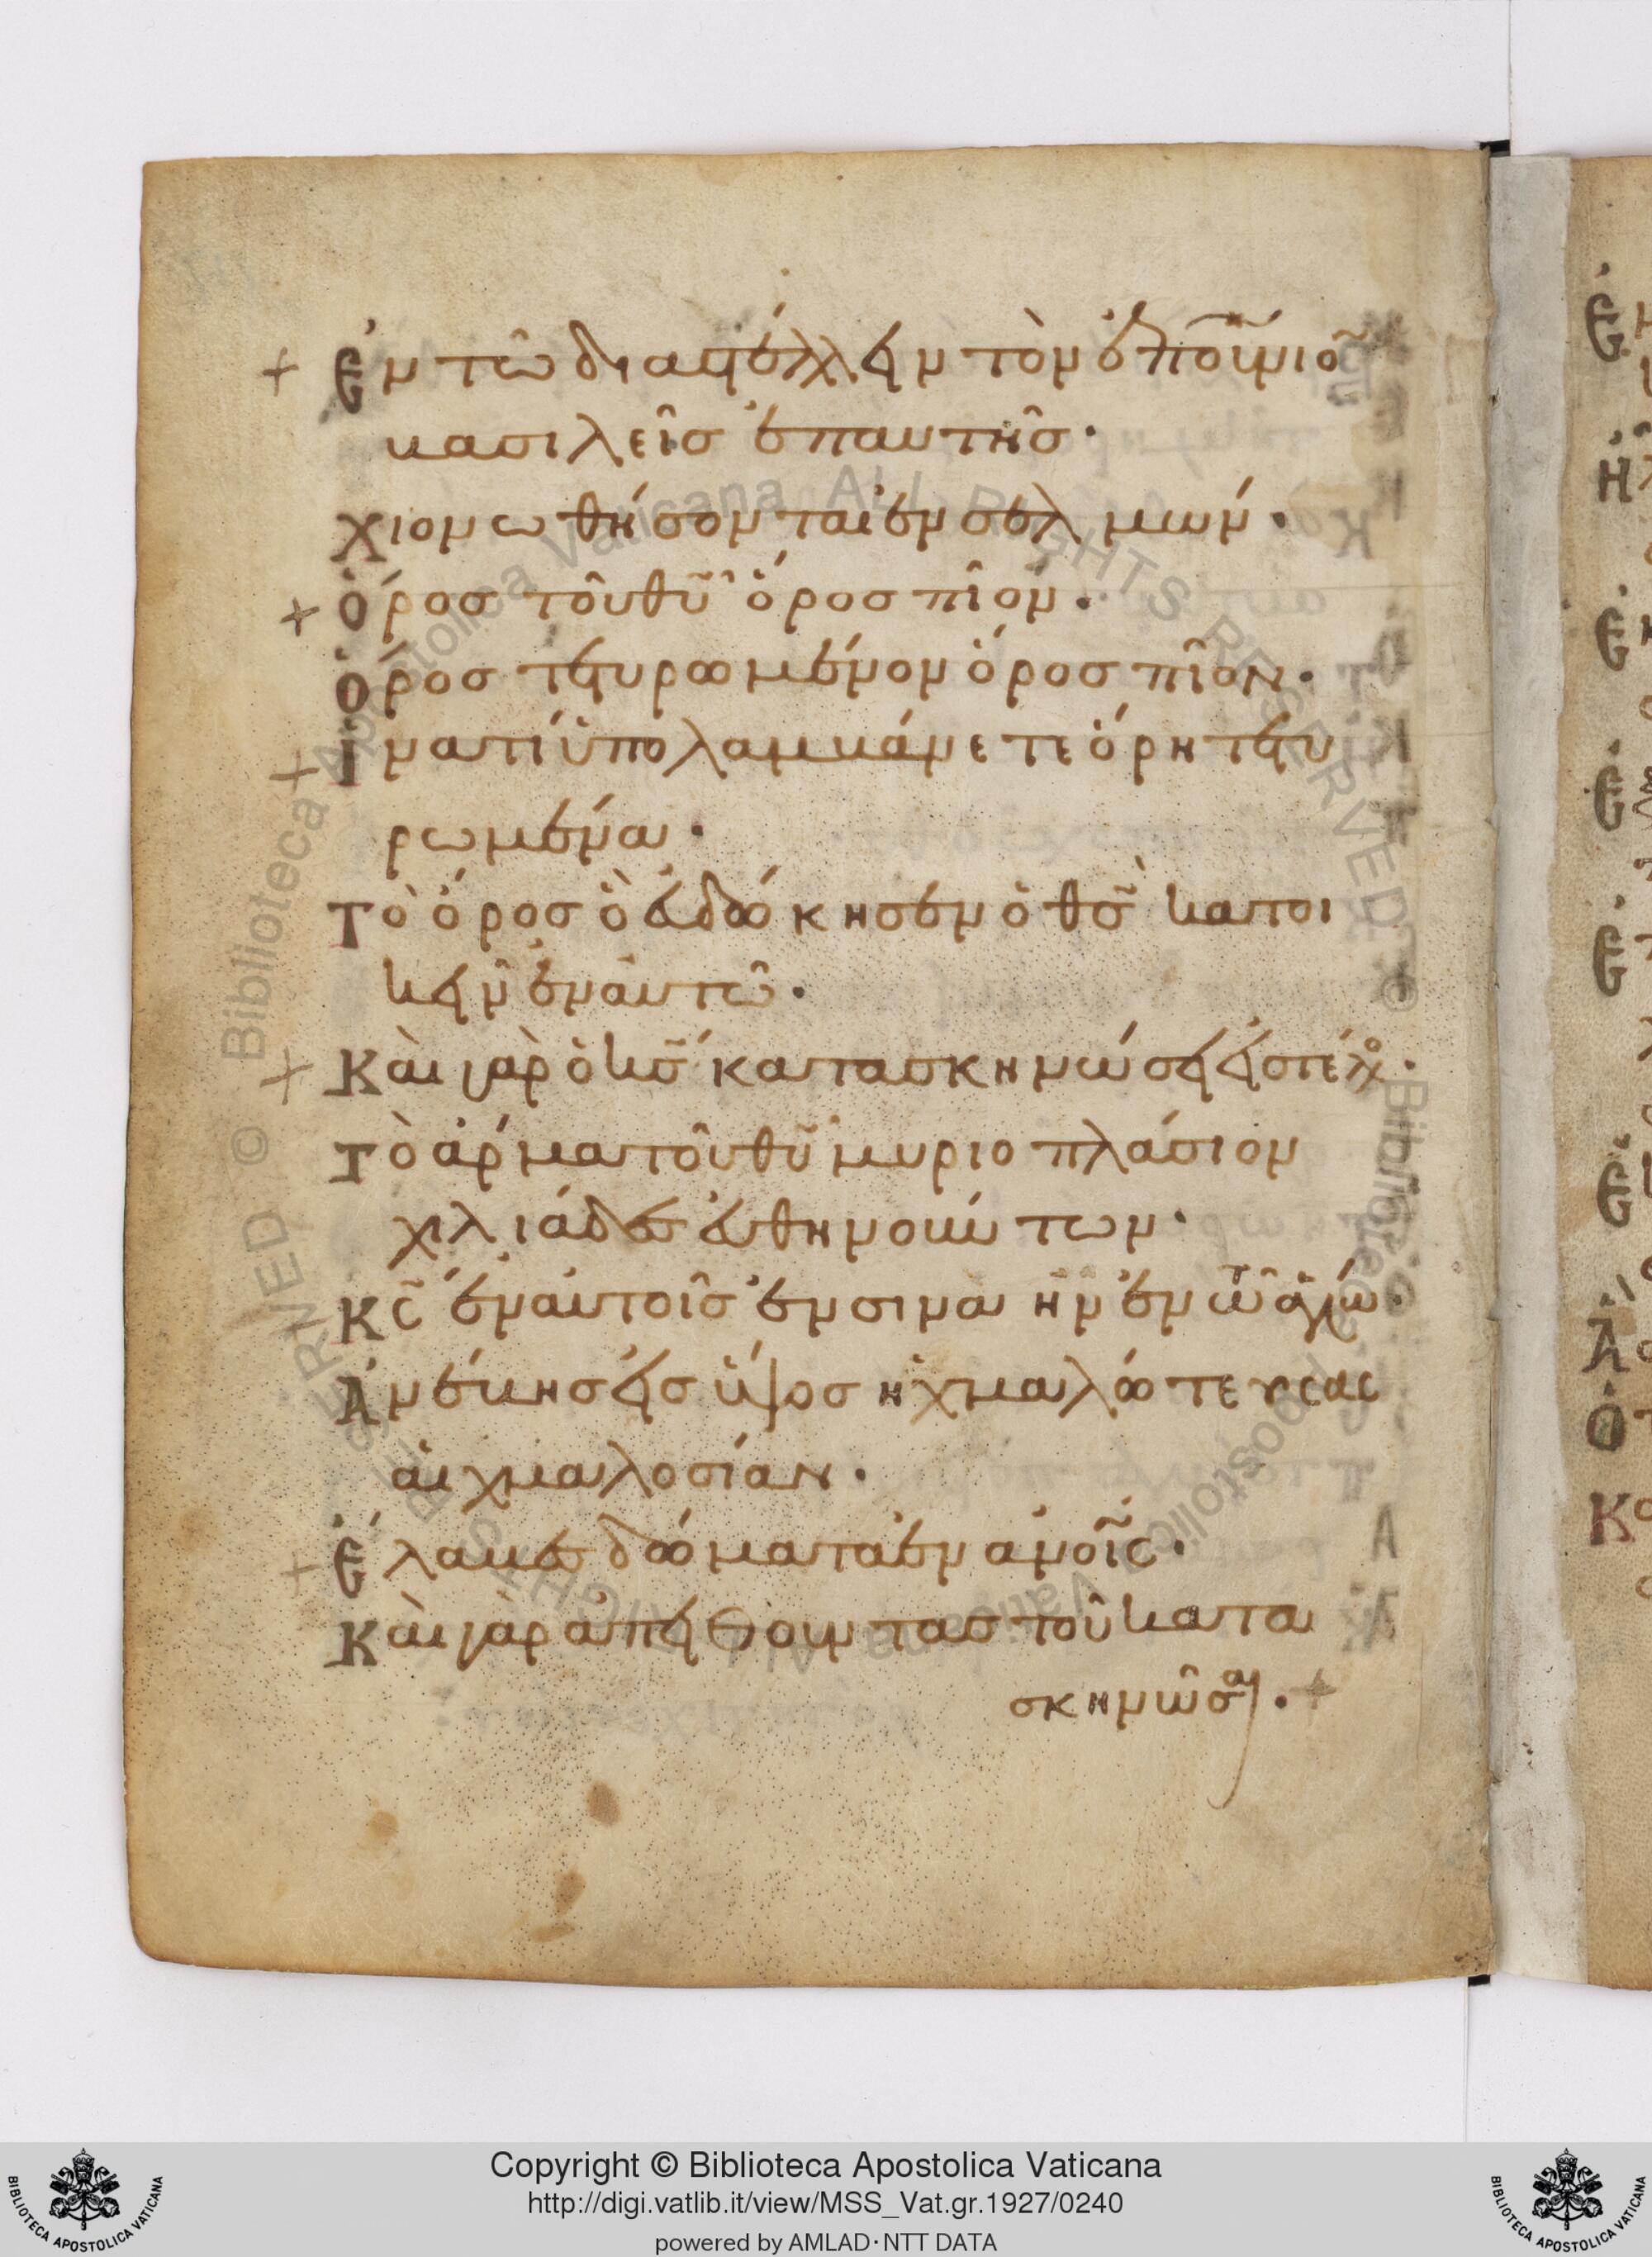 Ἐν τῶ διαστέλλειν τὸν ἐπουνιο͂
βασιλεῖσ ἐπαυτῆσ·
χιονωθήσονται ἐν σελμών·
ὄροσ τοῦ θῦ ὄροσ πῖον·
ὄροσ τετυρωμένον ὄροσ πῖον·
ἵνατί ὑπολαμβάνετε ὄρη τετυ
ρωμένα·
Τὸ ὄροσ ὃ εὐδόκησεν ὁ θσ͂ κατοι
κεῖν ἐν αυτῶ·
Καὶ γὰρ ὁ κσ͂ κατασκηνώσει εἰστέλο·
Τὸ ἅρμα τοῦ θῦ μυριοπλάσιον
χιλιάδεσ εὐθηνούντων·
Κσ͂ ἐν αυτοῖσ ἐν σινὰ ἢν ἐν τῶ ἁγίω·
Ἀνέβησ εἰσ ὕψοσ ἠχμαλώτευσασ
αἰχμαλοσίαν·
Ἔλαβεσ δόματα ἐν ἀνοῖσ·
Καὶ γὰρ ἀπειθοῦντασ τοῦ κατα
σκηνῶσαι·
Copyright © Biblioteca Apostolica Vaticana
http://digi.vatlib.it/view/MSS_Vat.gr.1927/0240
powered by AMLAD·NTT DATA
BIBLIOTECA APOSTOLICA VATICANA
BIBLIOTECA APOSTOLICA VATICANA